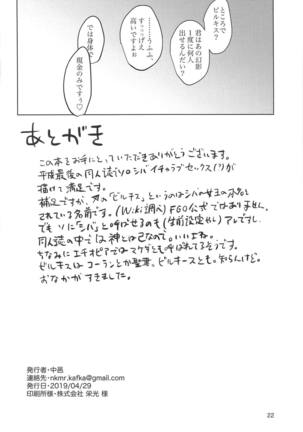 ところで
ビルキス?
君はあの幻影
1度に何人
出せるんだい?
………
うふふ、
すっ…げえ
高いですよぉ
では身体で
現金のみですぅ♡
あとがき
この本をお手にとっていただきありがとうございます。
平成最後の同人誌でソロシバイチャラブセックス(?)が
描けて満足です。
補足ですが、本の「ビルキス」というのはシバの女王の本名と
されている名前です。(Wiki調べ)FGO公式ではありません。
でもソロに「シバ」と呼ばせるのも(生前設定やし)アレですし
同人誌の中では神と己なので。いいよね。
ちなみにエチオピアではマケダとも呼ばれてるそうです。
ビルキスはコーランとか聖書。ビルキースとも。知らんけど。
おなかがすきました。
発行者・中邑
連絡先・nkmr.kafka@gmail.com
発行日・2019/04/29
印刷所様・株式会社 栄光 様
22